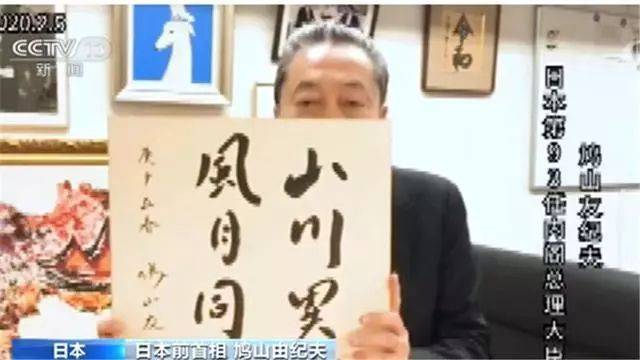 2020.2.5
CCTV 13
新闻
令和
日本第93任内阁总理大臣
鸠山友纪夫
山川異
風月同
庚子立春 鳩山友
日本 日本前首相 鸠山由纪夫